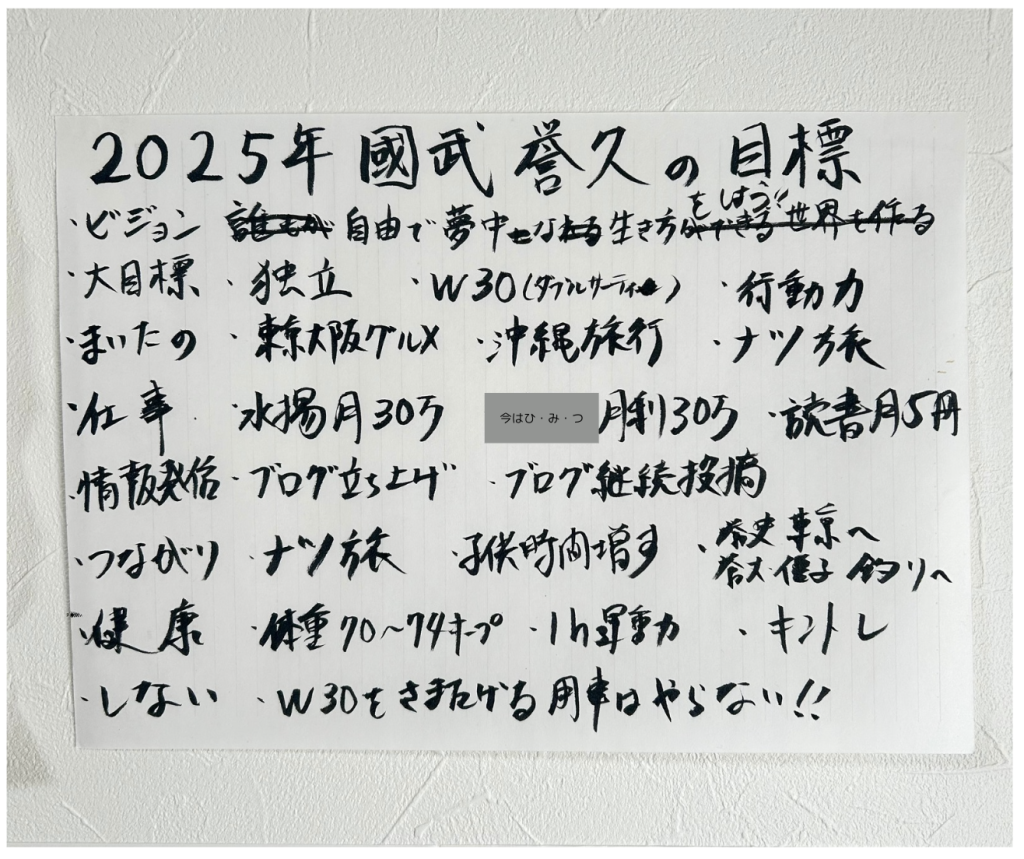 2025年 國武 誉久の目標
・ビジョン 誰もが 自由で夢中になれる生き方ができる世界を作る
をしよう!!
・大目標 ・独立 ・W30(ダブルサーティー) ・行動力
・まいたの ・東京大阪グルメ ・沖縄旅行 ・ナツ旅
・仕事 ・水揚月30万 今はひ・み・つ 月利30万 ・読書月5冊
・情報発信 ・ブログ立ち上げ ・ブログ継続投稿
・つながり ・ナツ旅 ・子供時間増す ・誉史 東京へ
優子 釣りへ
・健康 ・体重70〜74キープ ・1h運動 ・キントレ
・しない ・W30をさまたげる用事はやらない!!